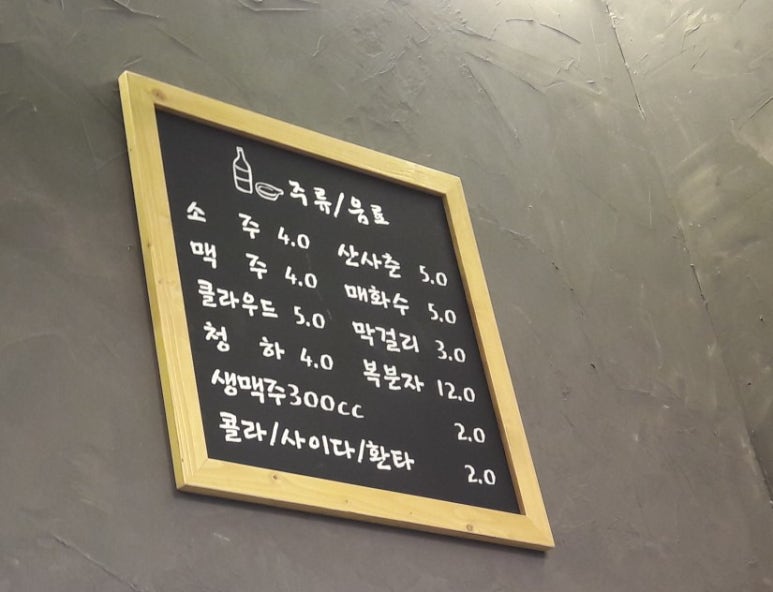 주류/음료
소 주 4.0 산사춘 5.0
맥 주 4.0 매화수 5.0
클라우드 5.0 막걸리 3.0
청 하 4.0 복분자 12.0
생맥주300cc 2.0
콜라/사이다/환타 2.0